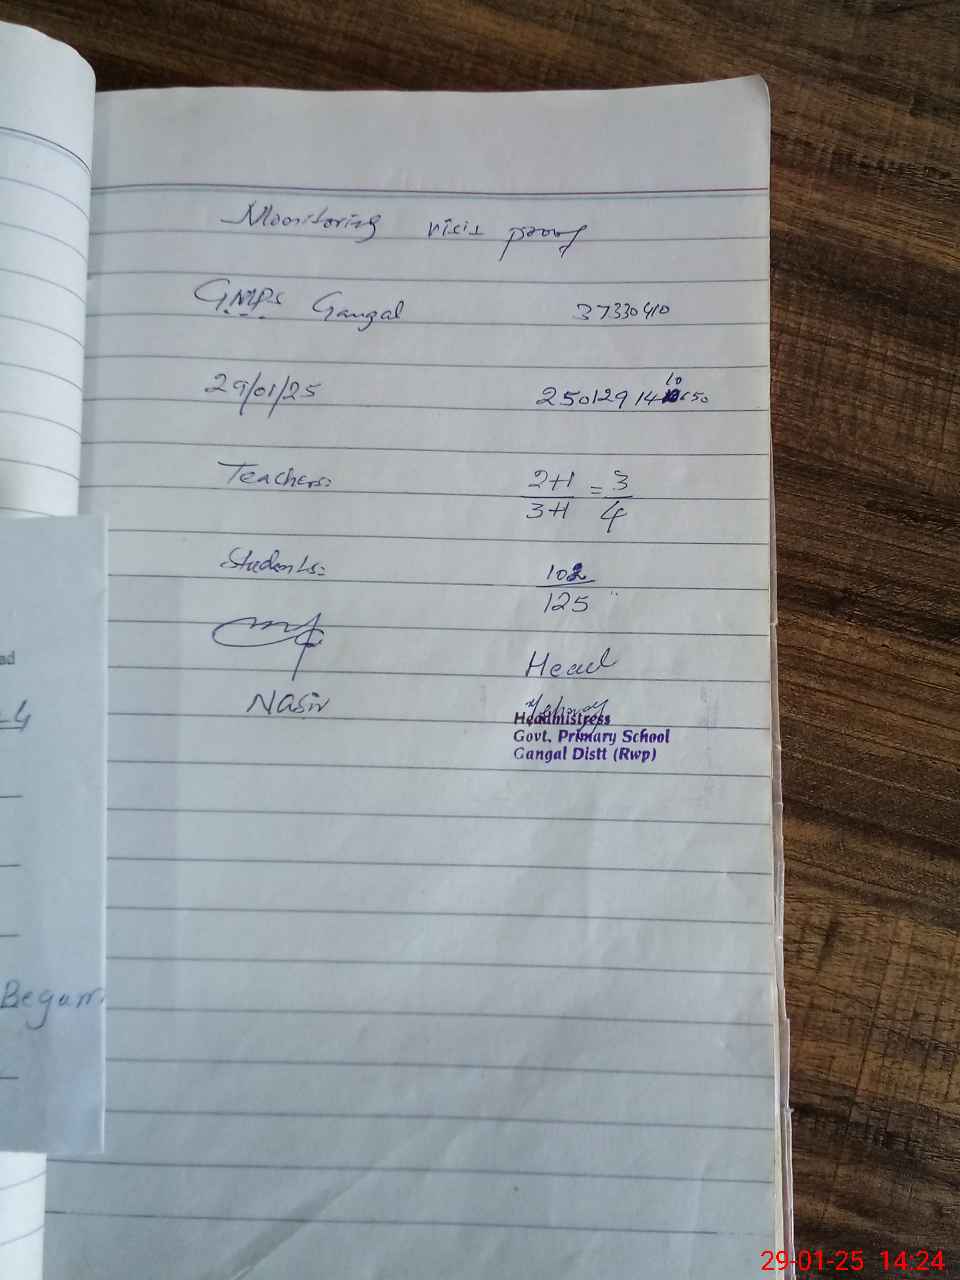 Monitoring visit proof
GMPS Gangal 37330410
29/01/25 25012914 10 650
Teachers: 2+1/3+1 = 3/4
Students: 102/125
Head
Nasir
Headmistress
Govt. Primary School
Gangal Distt (Rwp)
ad
-4
Begum
29-01-25 14:24